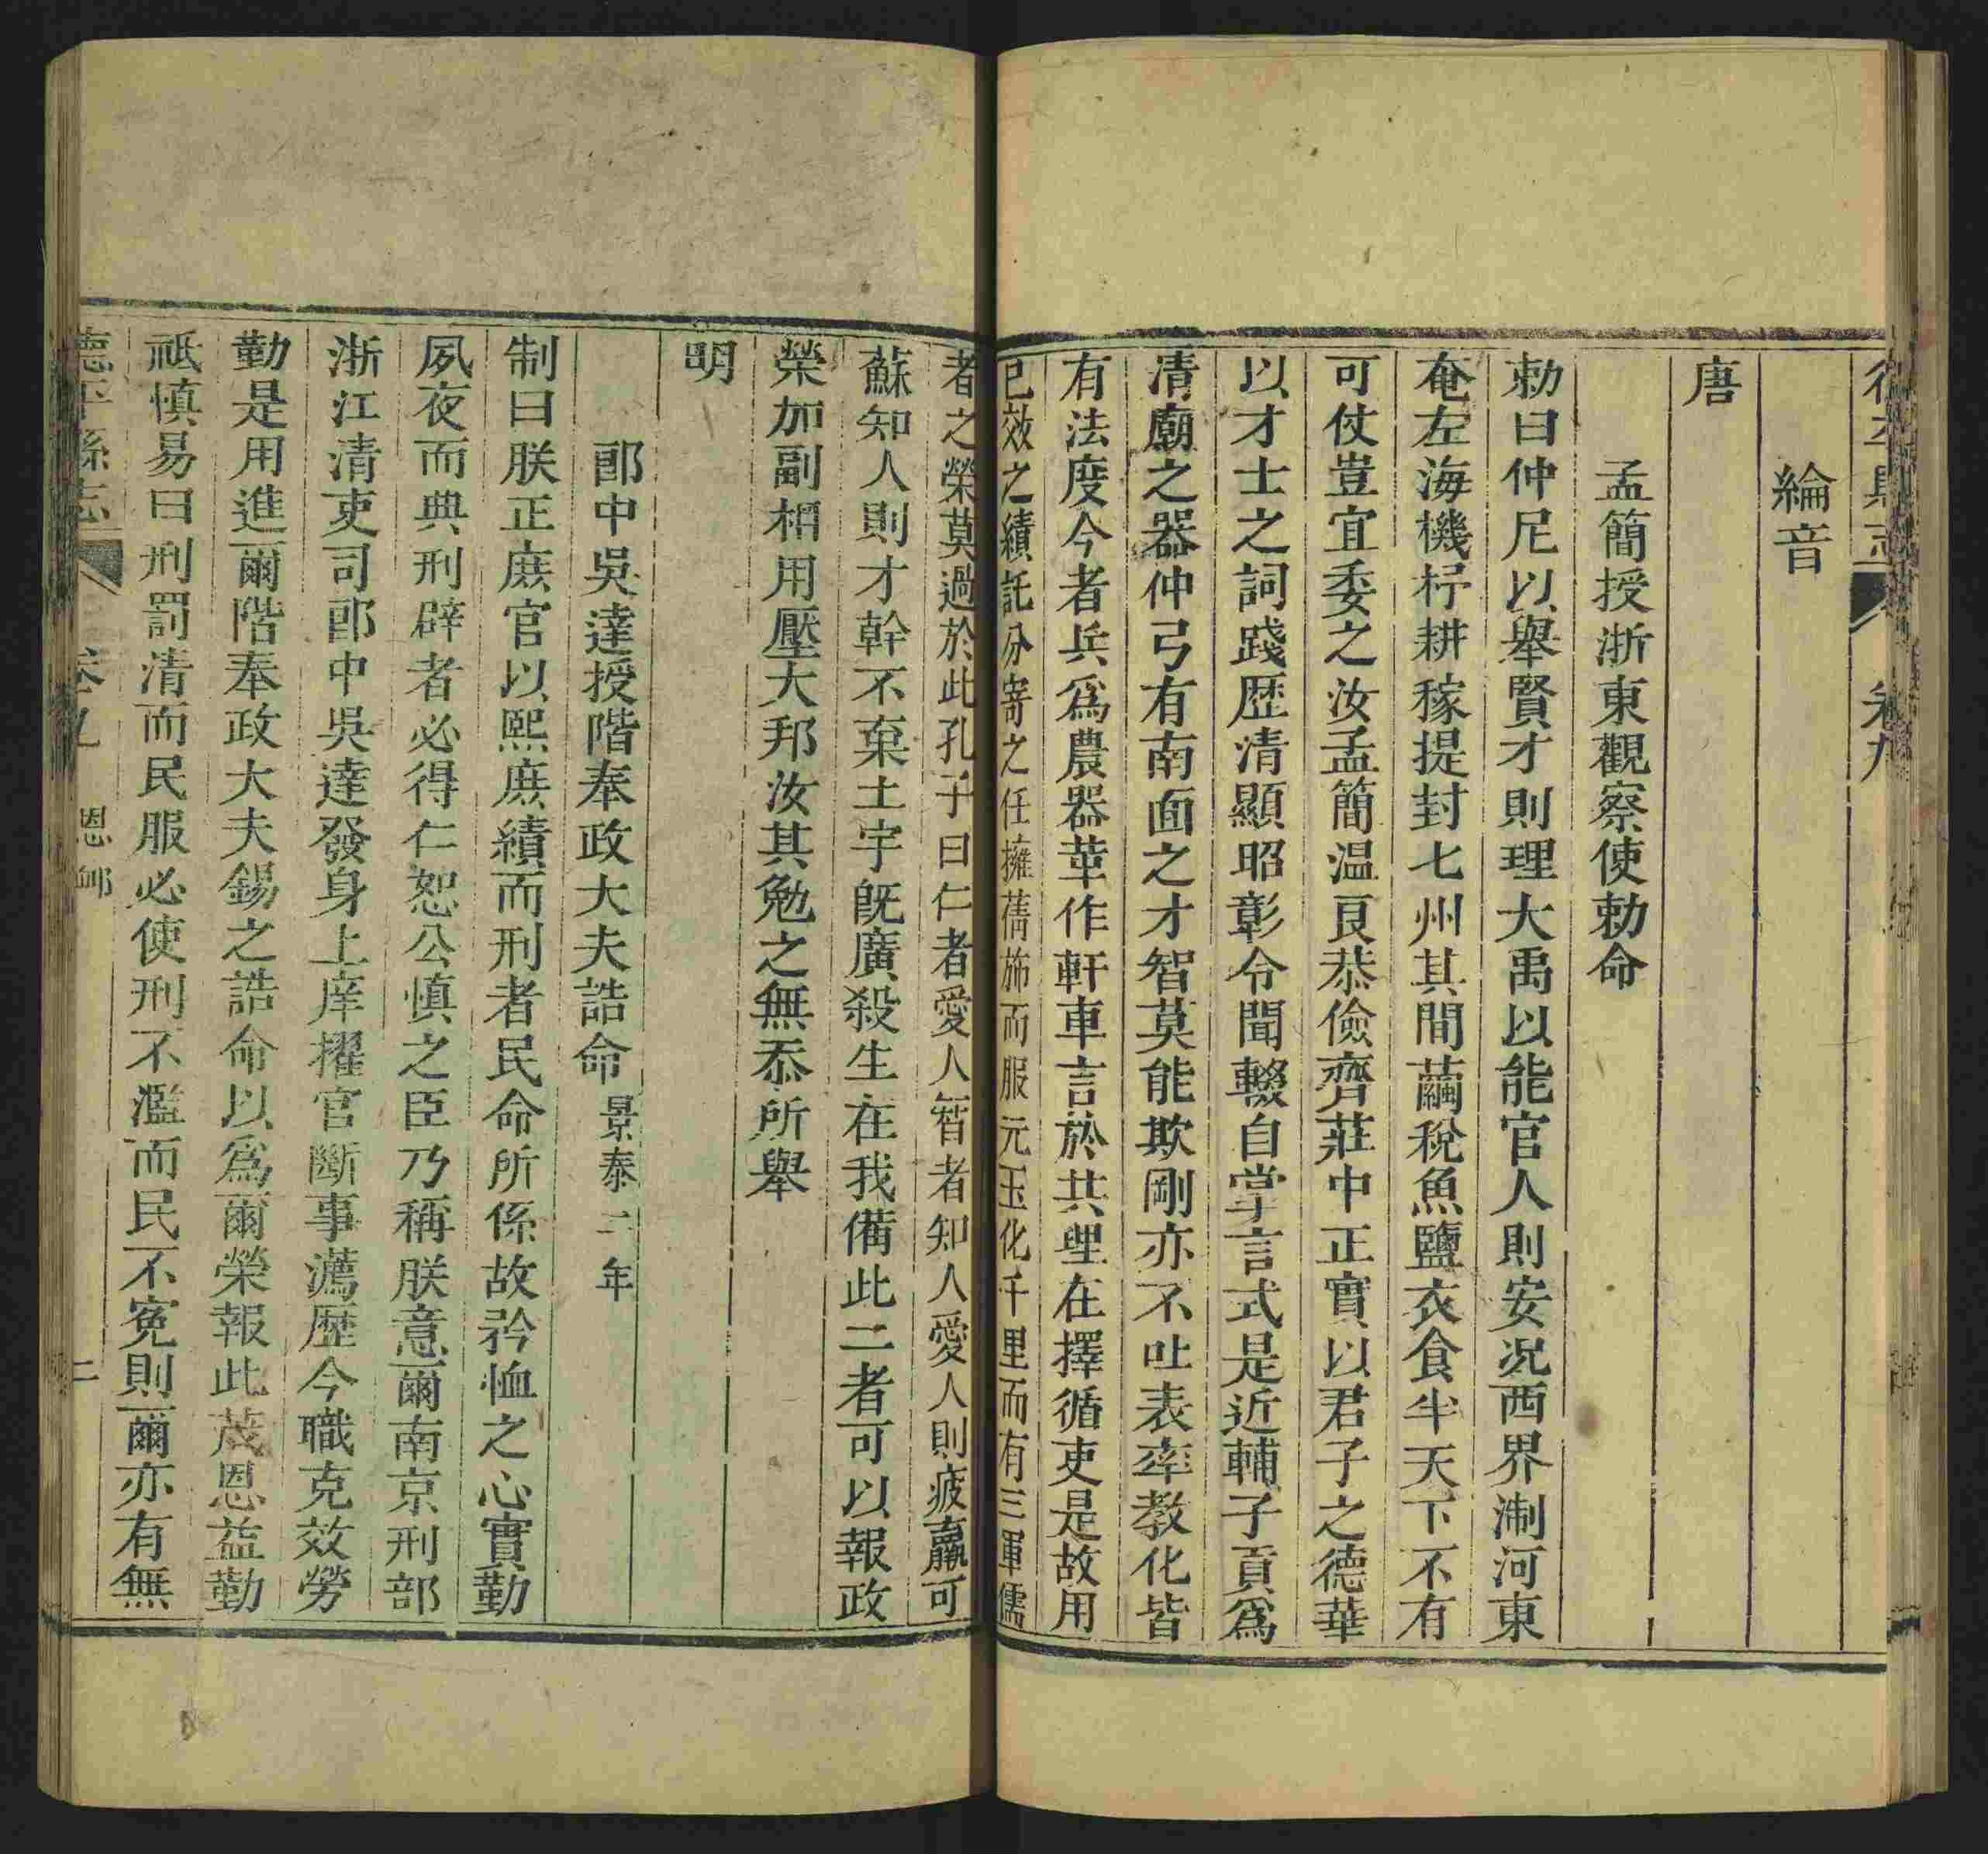 德平縣志 卷九
綸音
唐
孟簡授浙東觀察使勅命
勅曰仲尼以舉賢才則理大禹以能官人則安況西界淛河東
奄左海機杼耕稼提封七州其間繭稅魚鹽衣食半天下不有
可仗豈宜委之汝孟簡溫良恭儉齊莊中正實以君子之德華
以才士之詞踐歷清顯昭彰令聞輟自掌言式是近輔子貢爲
清廟之器仲弓有南面之才智莫能欺剛亦不吐表率教化皆
有法度今者兵爲農器革作軒車言於共理在擇循吏是故用
已效之績託分寄之任擁蒨旆而服元玉化千里而有三軍儒
者之榮莫過於此孔子曰仁者愛人智者知人愛人則疲羸可
蘇知人則才幹不棄土宇旣廣殺生在我備此二者可以報政
榮加副相用壓大邦汝其勉之無忝所舉
明
郎中吳達授階奉政大夫誥命 景泰二年
制曰朕正庶官以熙庶績而刑者民命所係故矜恤之心實勤
夙夜而典刑辟者必得仁恕公慎之臣乃稱朕意爾南京刑部
浙江清吏司郎中吳達發身上庠擢官斷事薦歷今職克效勞
勤是用進爾階奉政大夫錫之誥命以爲爾榮報此茂恩益勤
祗慎易曰刑罰清而民服必使刑不濫而民不寃則爾亦有無
德平縣志 卷九 恩䘏 二